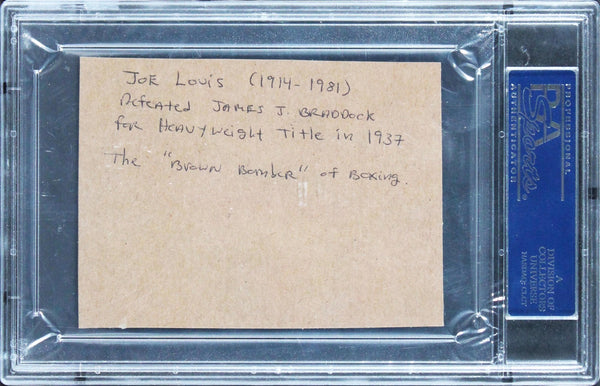 JOE LOUIS (1914-1981)
Defeated JAMES J. BRADDOCK
for HEAVYWEIGHT TITLE in 1937
The "BROWN BOMBER" of BOXING.
PROFESSIONAL
PSA
Sports.
AUTHENTICATOR
A
DIVISION OF
COLLECTORS
UNIVERSE
NASDAQ: CLCT